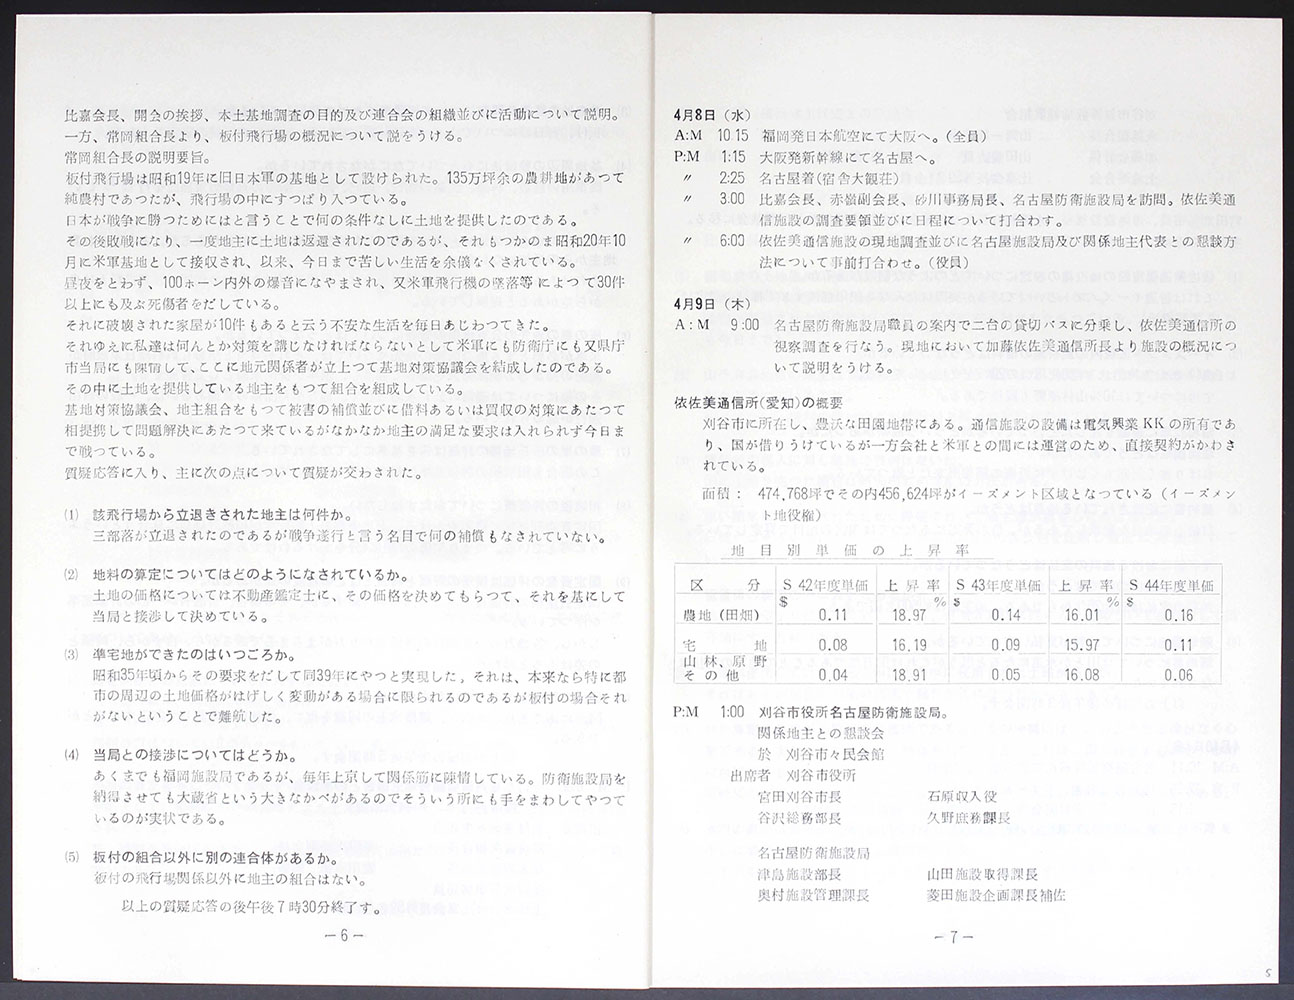 比嘉会長、開会の挨拶、本土基地調査の目的及び連合会の組織並びに活動について説明。
一方、常岡組合長より、板付飛行場の概況について説をうける。
常岡組合長の説明要旨。
板付飛行場は昭和19年に旧日本軍の基地として設けられた。135万坪余の農耕地があつて
純農村であつたが、飛行場の中にすつぽり入つている。
日本が戦争に勝つためにはと言うことで何の条件なしに土地を提供したのである。
その後敗戦になり、一度地主に土地は返還されたのであるが、それもつかのま昭和20年10
月に米軍基地として接収され、以来、今日まで苦しい生活を余儀なくされている。
昼夜をとわず、100ホーン内外の爆音になやまされ、又米軍飛行機の墜落等によつて30件
以上にも及ぶ死傷者をだしている。
それに破壊された家屋が10件もあると云う不安な生活を毎日あじわつてきた。
それゆえに私達は何んとか対策を講じなければならないとして米軍にも防衛庁にも又県庁
市当局にも陳情して、ここに地元関係者が立上つて基地対策協議会を結成したのである。
その中に土地を提供している地主をもつて組合を組成している。
基地対策協議会、地主組合をもつて被害の補償並びに借料あるいは買収の対策にあたつて
相提携して問題解決にあたつて来ているがなかなか地主の満足な要求は入れられず今日ま
で戦つている。
質疑応答に入り、主に次の点について質疑が交わされた。
(1) 該飛行場から立退きされた地主は何件か。
三部落が立退されたのであるが戦争遂行と言う名目で何の補償もなされていない。
(2) 地料の算定についてはどのようになされているか。
土地の価格については不動産鑑定士に、その価格を決めてもらつて、それを基にして
当局と接渉して決めている。
(3) 準宅地ができたのはいつごろか。
昭和35年頃からその要求をだして同39年にやつと実現した。それは、本来なら特に都
市の周辺の土地価格がはげしく変動がある場合に限られるのであるが板付の場合それ
がないということで難航した。
(4) 当局との接渉についてはどうか。
あくまでも福岡施設局であるが、毎年上京して関係筋に陳情している。防衛施設局を
納得させても大蔵省という大きなかべがあるのでそういう所にも手をまわしてやつて
いるのが実状である。
(5) 板付の組合以外に別の連合体があるか。
板付の飛行場関係以外に地主の組合はない。
以上の質疑応答の後午後7時30分終了す。
－6－
4月8日（水）
A:M 10.15 福岡発日本航空にて大阪へ。(全員)
P:M 1:15 大阪発新幹線にて名古屋へ。
〃 2:25 名古屋着(宿舎大観荘)
〃 3.00 比嘉会長、赤嶺副会長、砂川事務局長、名古屋防衛施設局を訪問。依佐美通
信施設の調査要領並びに日程について打合わす。
〃 6:00 依佐美通信施設の現地調査並びに名古屋施設局及び関係地主代表との懇談方
法について事前打合わせ。(役員)
4月9日（木）
A:M 9:00 名古屋防衛施設局職員の案内で二台の貸切バスに分乗し、依佐美通信所の
視察調査を行なう。現地において加藤依佐美通信所長より施設の概況につ
いて説明をうける。
依佐美通信所(愛知)の概要
刈谷市に所在し、豊沃な田園地帯にある。通信施設の設備は電気興業KKの所有であ
り、国が借りうけているが一方会社と米軍との間には運営のため、直接契約がかわさ
れている。
面積： 474,768坪でその内456,624坪がイーズメント区域となつている（イーズメン
ト地役権）
地目別単価の上昇率
区分 S 42年度単価 上昇率 S 43年度単価 上昇率 S 44年度単価
農地(田畑) $ 0.11 18.97 % $ 0.14 16.01 % $ 0.16
宅地 0.08 16.19 0.09 15.97 0.11
山林、原野
その他 0.04 18.91 0.05 16.08 0.06
P:M 1:00 刈谷市役所名古屋防衛施設局。
関係地主との懇談会
於 刈谷市々民会館
出席者 刈谷市役所
宮田刈谷市長 石原収入役
谷沢総務部長 久野庶務課長
名古屋防衛施設局
津島施設部長 山田施設取得課長
奥村施設管理課長 菱田施設企画課長補佐
－7－
5